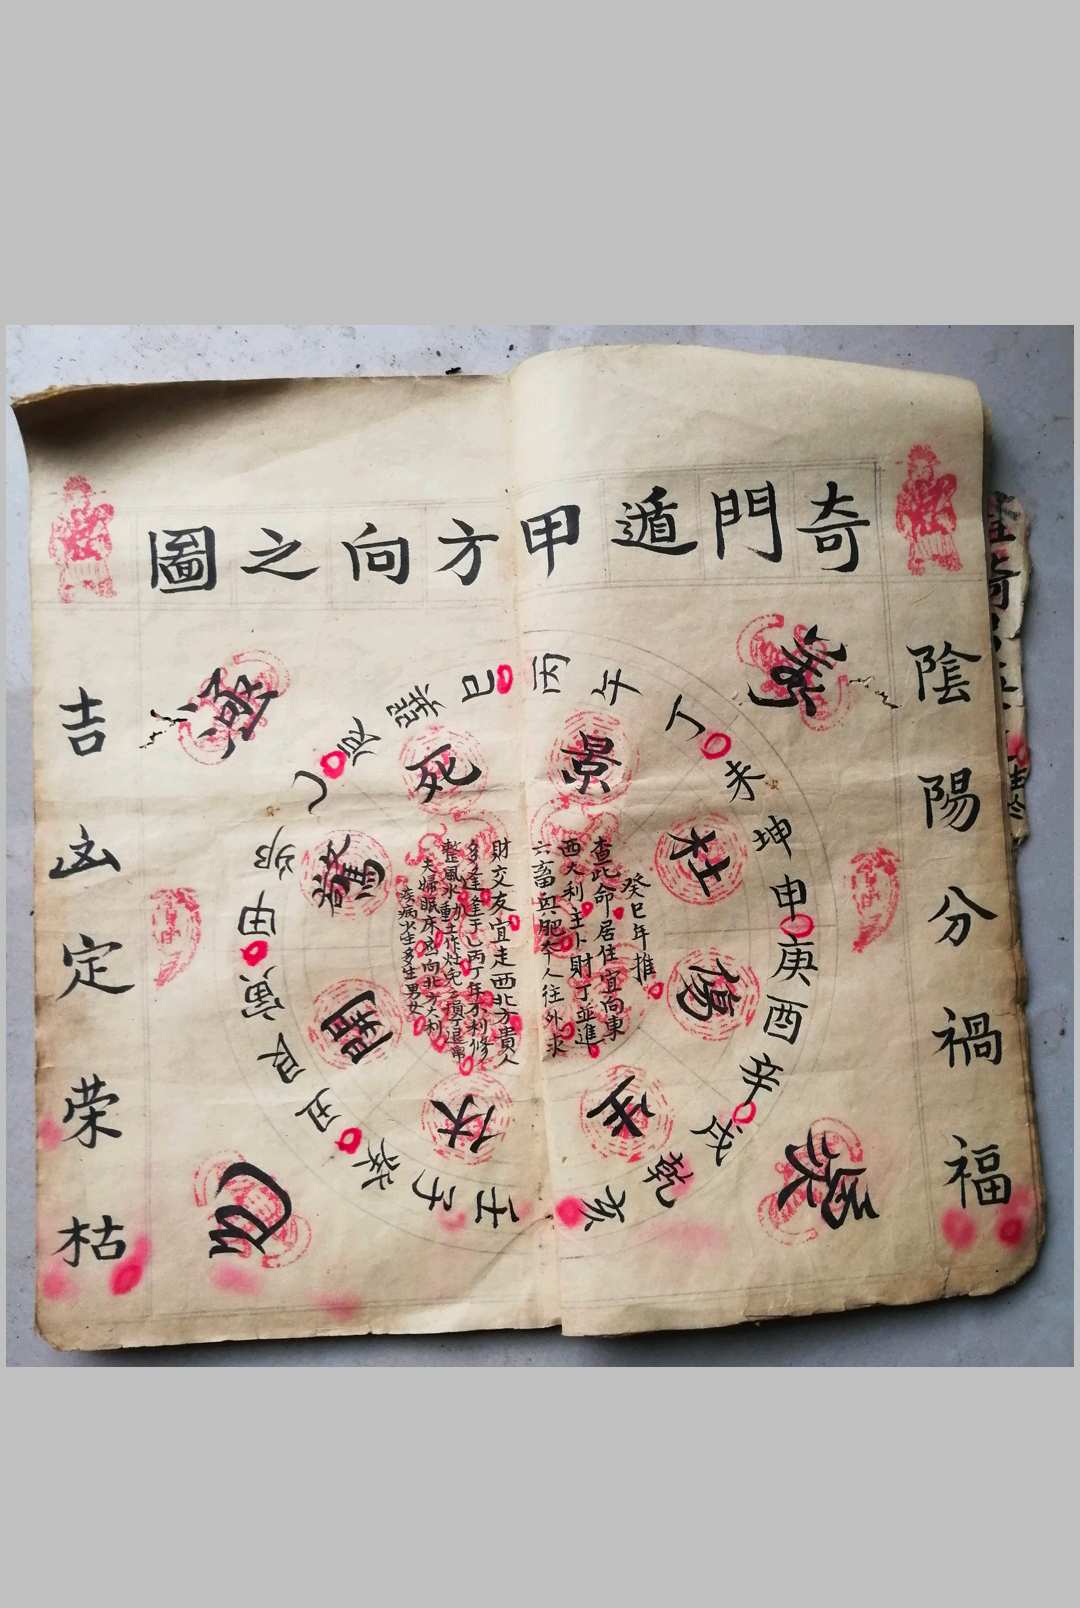 奇門遁甲方向之圖
陰陽分禍福
吉凶定荣枯
丙午丁未坤申庚酉辛戌乾亥壬子癸丑艮寅甲卯乙辰巽巳
景杜傷生伏開驚死
癸巳年推
查此命居住宜向東
西大利主卜財丁並進
六畜興肥本人往外求
財交友宜走西北方貴人
多逢逢于乙丙丁年不利修
整風水動土作灶免之損丁退
夫婦眠床宜向北方大利
疾病少生多生男女